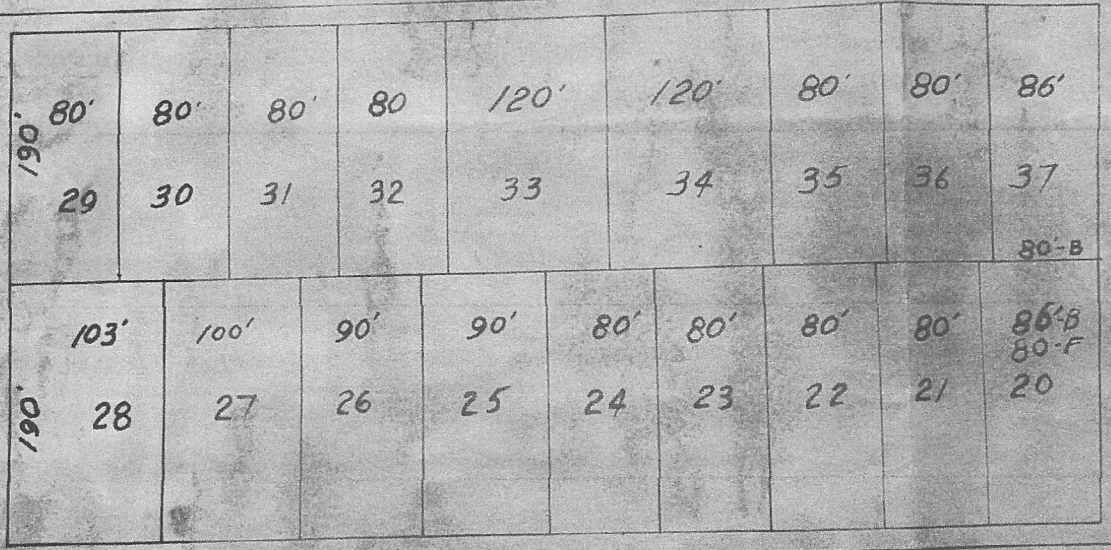 190'
80' 80' 80' 80 120' 120' 80' 80' 86'
29 30 31 32 33 34 35 36 37
80'-B
190'
103' 100' 90' 90' 80' 80' 80' 80' 86'-B
80-F
28 27 26 25 24 23 22 21 20